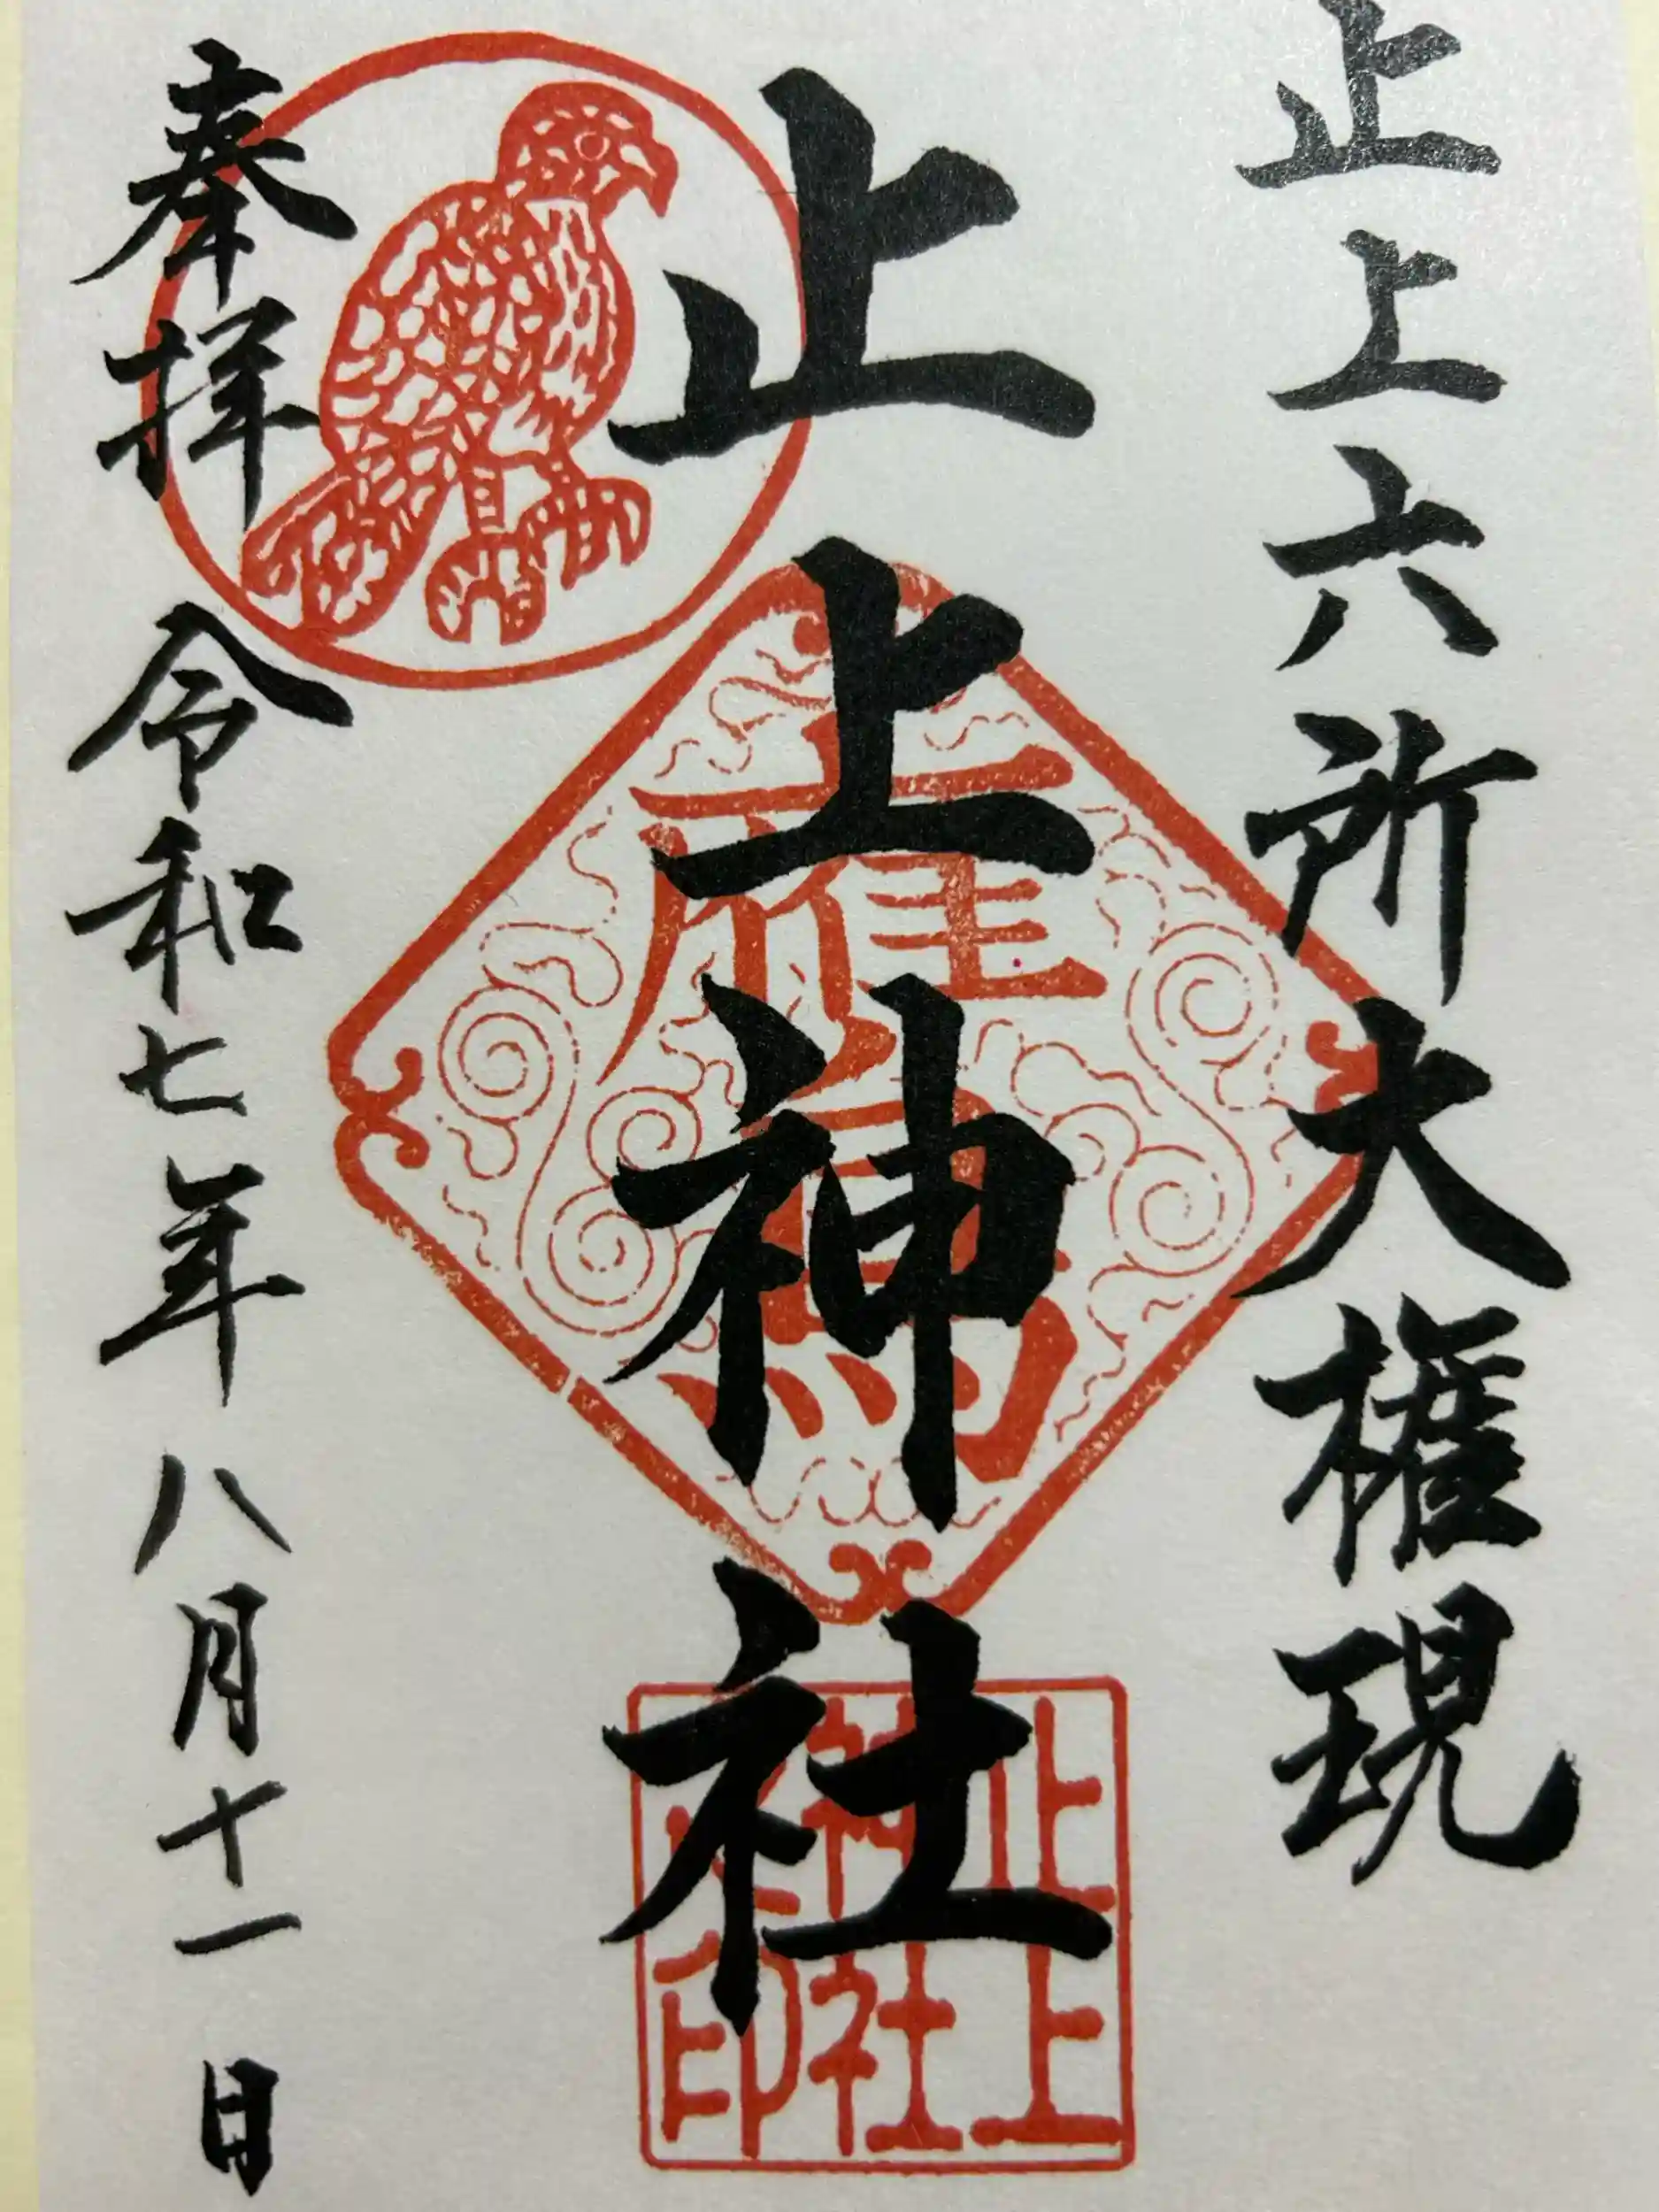 止上六所大権現
止上神社
鷹
止上
神社
印
奉拝 令和七年八月十一日